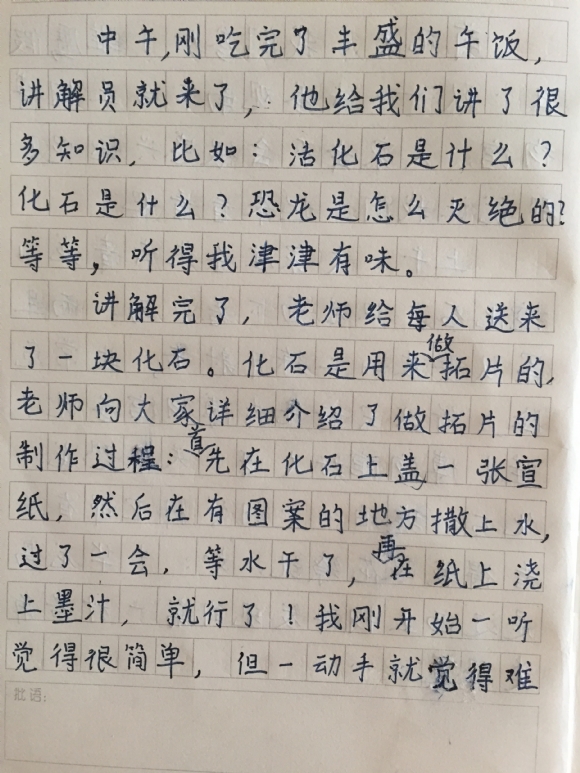 中午,刚吃完了丰盛的午饭,
讲解员就来了,他给我们讲了很
多知识,比如:活化石是什么?
化石是什么?恐龙是怎么灭绝的?
等等,听得我津津有味。
讲解完了,老师给每人送来
了一块化石。化石是用来做拓片的,
老师向大家详细介绍了做拓片的
制作过程:首先在化石上盖一张宣
纸,然后在有图案的地方撒上水,
过了一会,等水干了,再在纸上浇
上墨汁,就行了!我刚开始一听
觉得很简单,但一动手就觉得难
批语: